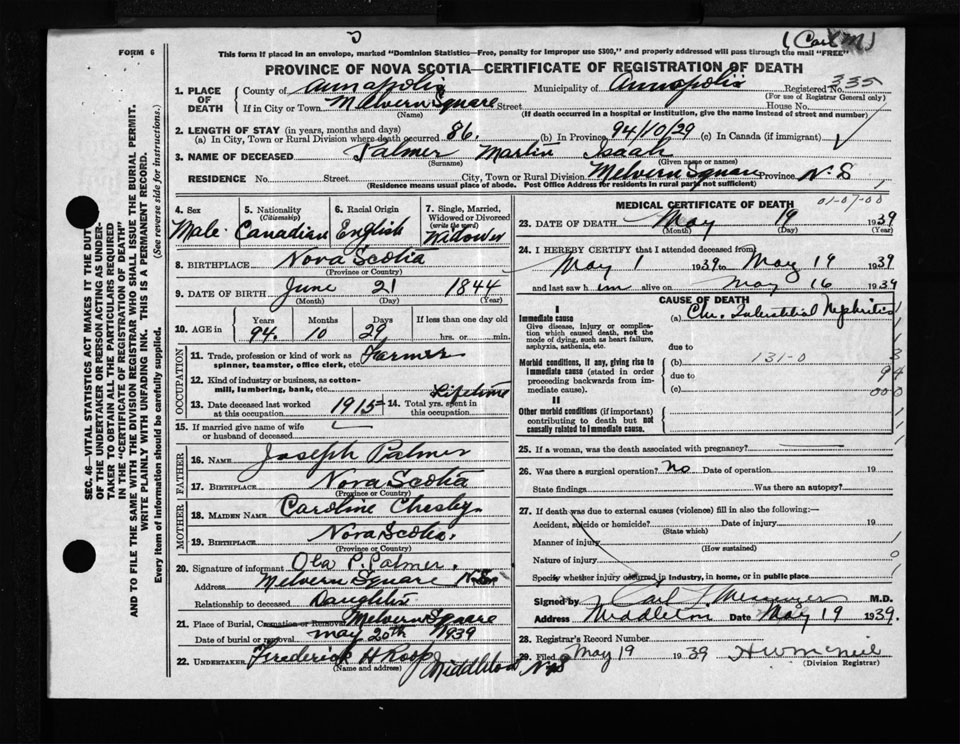 (Carl M)
FORM 6
This form if placed in an envelope, marked "Dominion Statistics—Free, penalty for improper use $300," and properly addressed will pass through the mail "FREE"
PROVINCE OF NOVA SCOTIA—CERTIFICATE OF REGISTRATION OF DEATH
SEC. 46—VITAL STATISTICS ACT MAKES IT THE DUTY
OF THE UNDERTAKER OR PERSON ACTING AS UNDER-
TAKER TO OBTAIN ALL THE PARTICULARS REQUIRED
IN THE "CERTIFICATE OF REGISTRATION OF DEATH"
AND TO FILE THE SAME WITH THE DIVISION REGISTRAR WHO SHALL ISSUE THE BURIAL PERMIT.
WRITE PLAINLY WITH UNFADING INK. THIS IS A PERMANENT RECORD.
Every item of information should be carefully supplied. (See reverse side for instructions.)
1. PLACE OF DEATH County of Annapolis Municipality of Annapolis Registered No. 335
(For use of Registrar General only)
If in City or Town Melvern Square Street House No.
(Name) (If death occurred in a hospital or institution, give the name instead of street and number)
2. LENGTH OF STAY (in years, months and days)
(a) In City, Town or Rural Division where death occurred 86. (b) In Province 94/10/29 (c) In Canada (if immigrant)
3. NAME OF DECEASED Palmer Martin Isaah
(Surname) (Given name or names)
RESIDENCE No. Street City, Town or Rural Division Melvern Square Province N.S
(Residence means usual place of abode. Post Office Address for residents in rural parts not sufficient)
4. Sex Male
5. Nationality (Citizenship) Canadian
6. Racial Origin English
7. Single, Married, Widowed or Divorced (write the word) Widower
8. BIRTHPLACE Nova Scotia
(Province or Country)
9. DATE OF BIRTH June 21 1844
(Month) (Day) (Year)
10. AGE in Years 94 Months 10 Days 29 If less than one day old hrs. or min.
OCCUPATION
11. Trade, profession or kind of work as spinner, teamster, office clerk, etc. Farmer
12. Kind of industry or business, as cotton-mill, lumbering, bank, etc.
13. Date deceased last worked at this occupation 1915 14. Total yrs. spent in this occupation Lifetime
15. If married give name of wife or husband of deceased
FATHER
16. NAME Joseph Palmer
17. BIRTHPLACE Nova Scotia
(Province or Country)
MOTHER
18. MAIDEN NAME Caroline Chesley
19. BIRTHPLACE Nova Scotia.
(Province or Country)
20. Signature of informant Ola P. Palmer.
Address Melvern Square N.S.
Relationship to deceased Daughter
21. Place of Burial, Cremation or Removal Melvern Square
Date of burial or removal May 20th 1939
22. UNDERTAKER Frederick H Roop Middleton N.S
(Name and address)
MEDICAL CERTIFICATE OF DEATH 01-01-00
23. DATE OF DEATH May 19 1939
(Month) (Day) (Year)
24. I HEREBY CERTIFY that I attended deceased from
May 1 1939 to May 19 1939
and last saw him alive on May 16 1939
CAUSE OF DEATH
I
Immediate cause (a) Chr. Interstitial Nephritis
Give disease, injury or complication which caused death, not the mode of dying, such as heart failure, asphyxia, asthenia, etc.
due to
Morbid conditions, if any, giving rise to immediate cause (stated in order proceeding backwards from immediate cause).
(b) 131-0 3
due to 94
(c) 000
II
Other morbid conditions (if important) contributing to death but not causally related to immediate cause.
25. If a woman, was the death associated with pregnancy?
26. Was there a surgical operation? No Date of operation 19
State findings Was there an autopsy?
27. If death was due to external causes (violence) fill in also the following:—
Accident, suicide or homicide? Date of injury 19
(State which)
Manner of injury
(How sustained)
Nature of injury 0
Specify whether injury occurred in industry, in home, or in public place
Signed by Carl M.D.
Address Middleton Date May 19 1939.
28. Registrar's Record Number
29. Filed May 19 1939 H W McNeil
(Division Registrar)